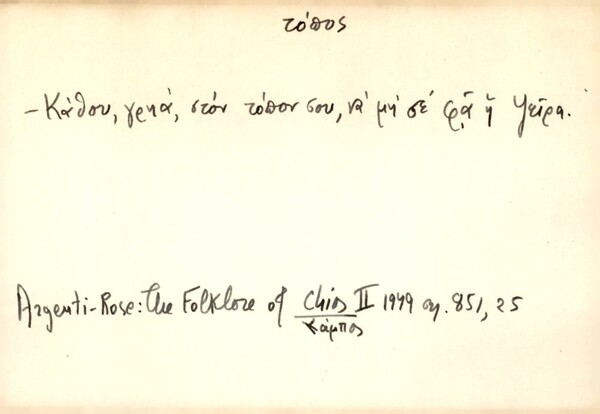 τόπος
- Κάθου, γρηά, στόν τόπον σου, νά μή σέ φᾷ ἡ ψεῖρα.
Argenti-Rose: The Folklore of Chios II 1949 σ. 851, 25
Κάμπος